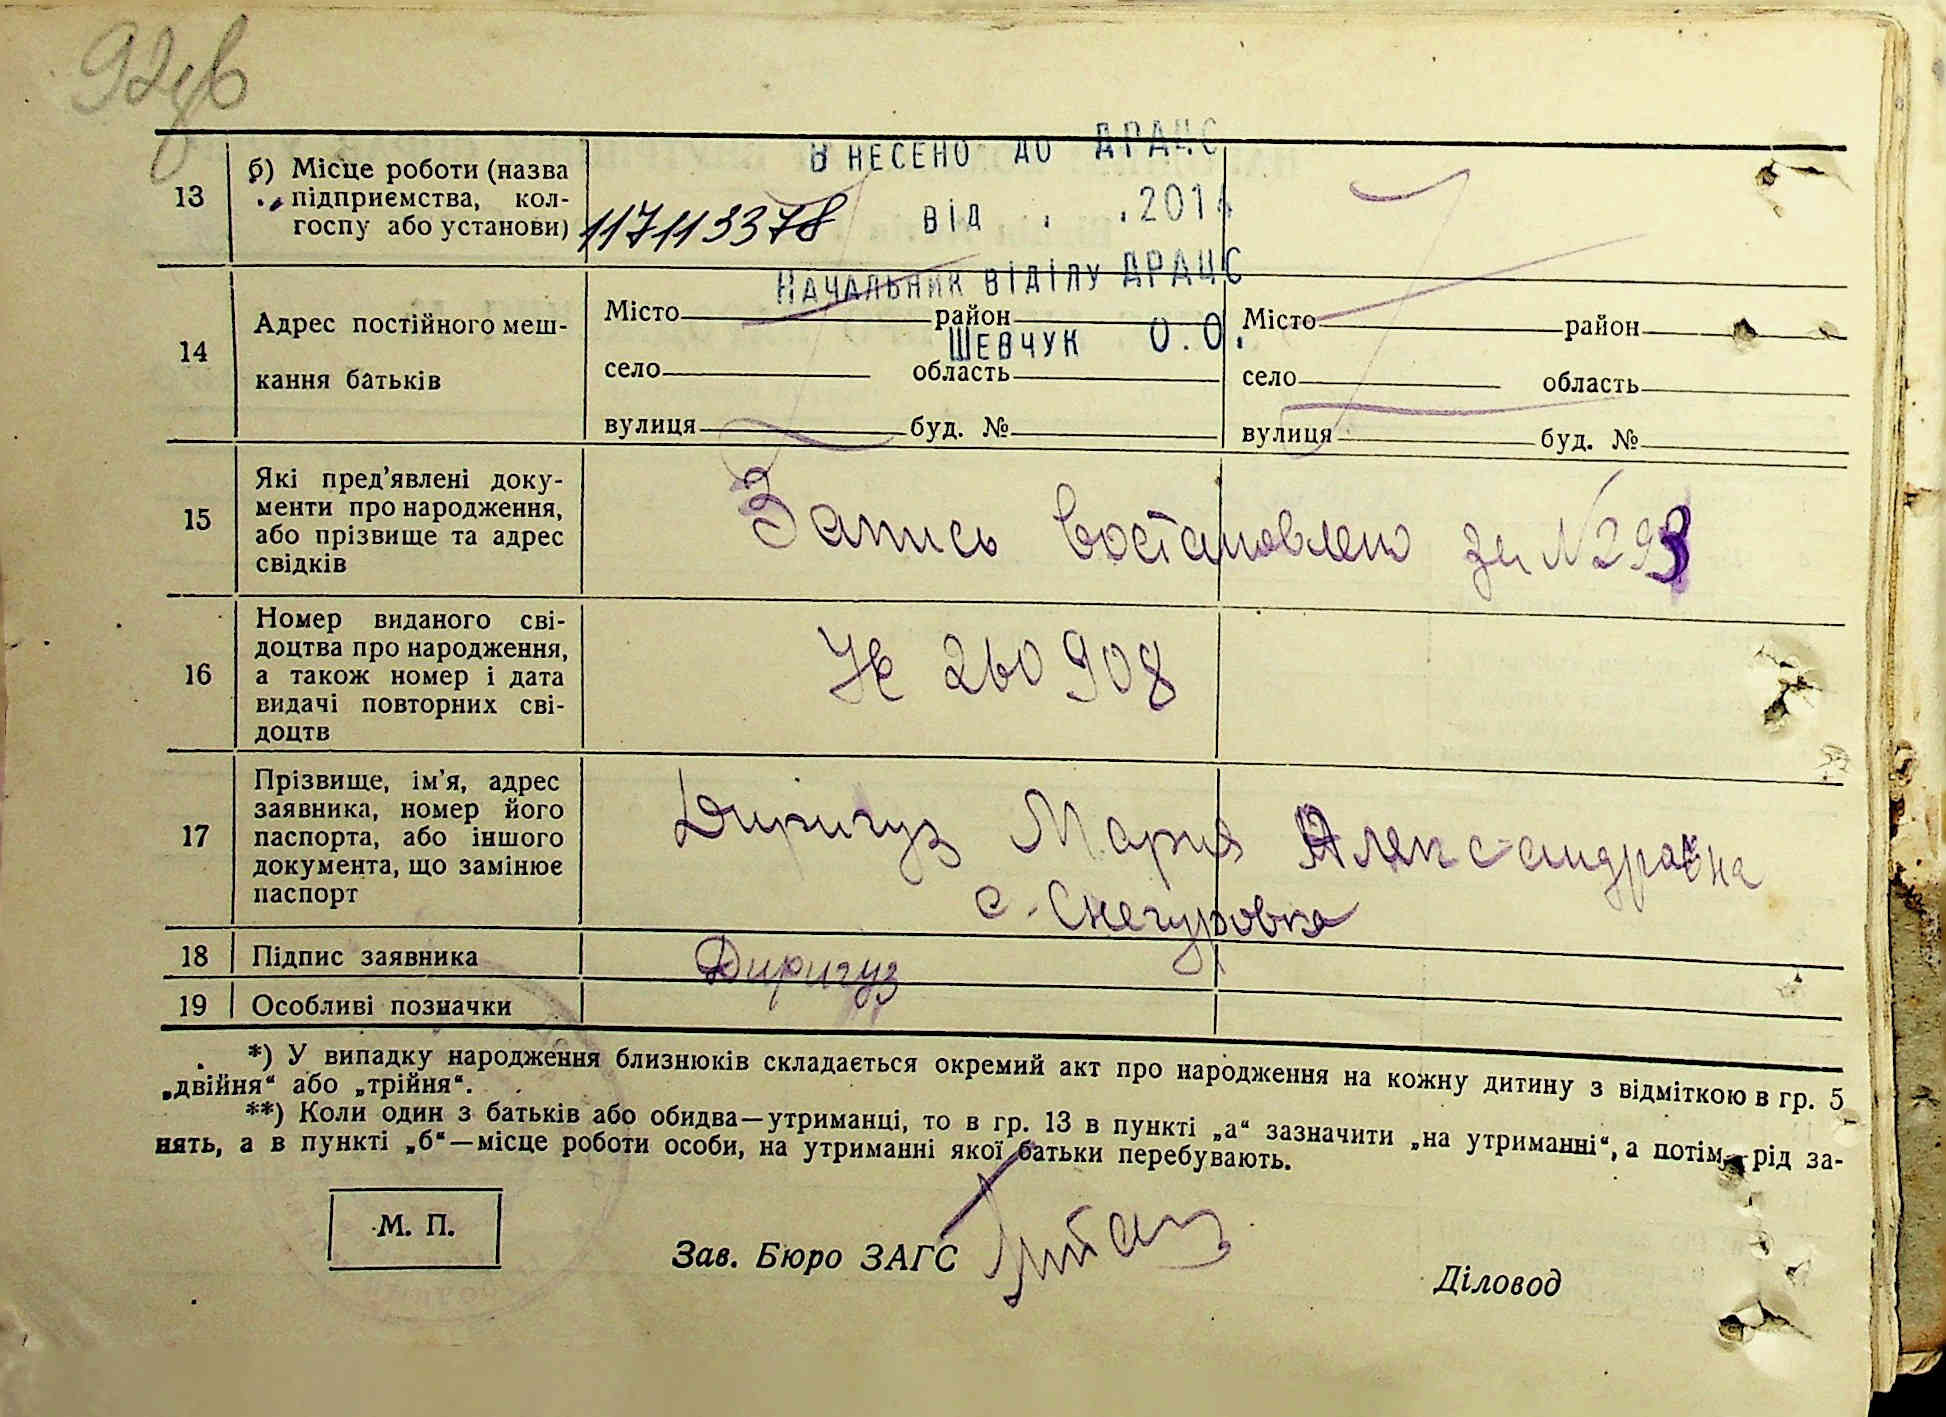 92
13
б) Місце роботи (назва
підприємства, кол-
госпу або установи)
117113378
ВНЕСЕНО ДО ДРАЦС
ВІД . .2014
НАЧАЛЬНИК ВІДІЛУ ДРАЦС
ШЕВЧУК О.О.
14
Адрес постійного меш-
кання батьків
Місто район
село область
вулиця буд. №
Місто район
село область
вулиця буд. №
15
Які пред’явлені доку-
менти про народження,
або прізвище та адрес
свідків
Запись востановлено за №293
16
Номер виданого сві-
доцтва про народження,
а також номер і дата
видачі повторних сві-
доцтв
260908
17
Прізвище, ім’я, адрес
заявника, номер його
паспорта, або іншого
документа, що замінює
паспорт
Диригуз Мария Александравна
с. Снегуровка
18
Підпис заявника
Диригуз
19
Особливі позначки
*) У випадку народження близнюків складається окремий акт про народження на кожну дитину з відміткою в гр. 5
„двійня“ або „трійня“.
**) Коли один з батьків або обидва—утриманці, то в гр. 13 в пункті „а“ зазначити „на утриманні“, а потім—рід за-
нять, а в пункті „б“—місце роботи особи, на утриманні якої батьки перебувають.
М. П.
Зав. Бюро ЗАГС
Діловод